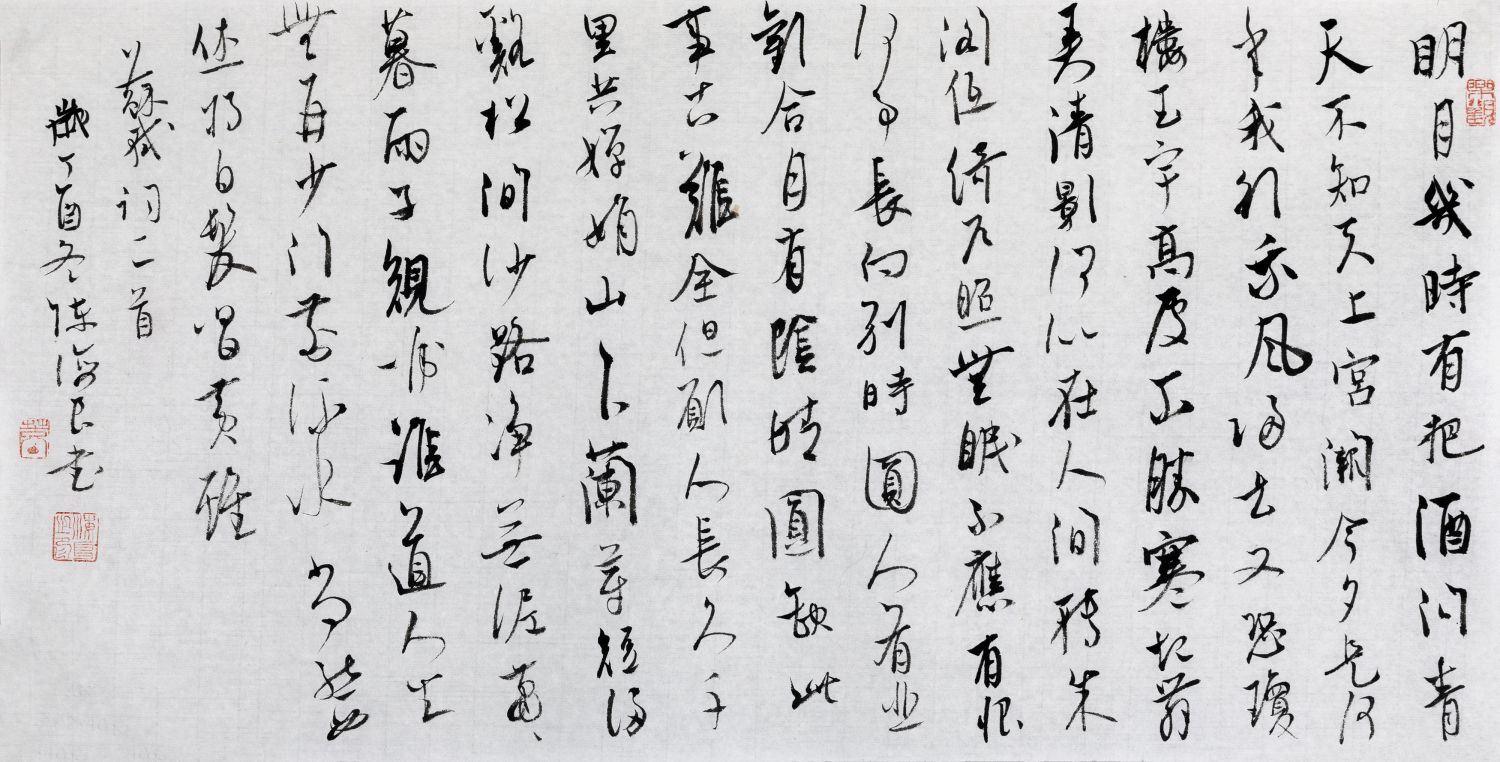 明月幾時有把酒问青
天不知天上宮闕今夕是何
年我欲乘風归去又恐瓊
樓玉宇高處不勝寒起舞
弄清影何似在人间转朱
阁低绮户照無眠不應有恨
何事長向别時圓人有悲
歡合月有陰晴圓缺此
事古難全但願人長久千
里共嬋娟山下蘭芽短浸
谿松间沙路净無泥萧〻
暮雨子規啼誰道人生
無再少门前流水尚能
休將白髮唱黄雞
蘇軾词二首
歲丁酉冬陳海良书